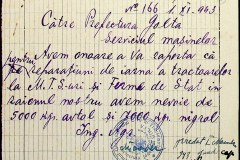 No 166 1 XI. 943
Către Prefectura Golta
Serviciul mașinelor
Avem onoare a Va raporta că
pentru reparațiuni de iarna a tractoarelor
la M.T.S-uri și ferme de Stat în
raionul nostru avem nevoie de
5000 kgr. avtol și 2000 kgr. nigrol
Ing. Agr.